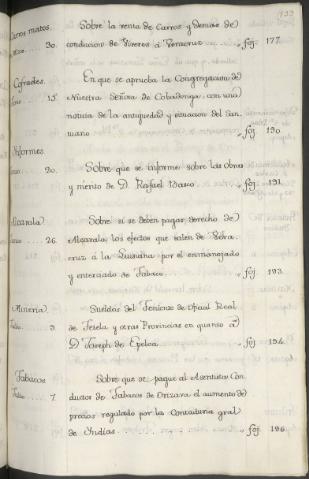 Sobre la renta de Carros y Demas de
30. conducion de Viveres a Veracruz fój. 177.
Cofrades. En que se aprueba la Congregacion de
15. Nuestra Señora de Cobadonga, con una
noticia de la antiguedad y situacion del San
tuario fój. 190
Ynformes Sobre que se informe sobre las obras
20. y merito de D. Rafael fój. 191.
Alcavala Sobre si se deben pagar derecho de
26. Alcavala, los efectos que salen de Vera
cruz á la por el enmangado
y enterciado de Tabaco fój. 193.
Mineria Sueldos del Teniente de Oficial Real
Julio 3. de Tetela y otras Provincias en quanto á
D. Joseph de fój.
Tabacos Sobre que se pague al Asentista Con
Julio 7. ductor de Tabacos de Orizava el aumento de
precios regulado por la Contaduria gral
de Yndias fój. 196.